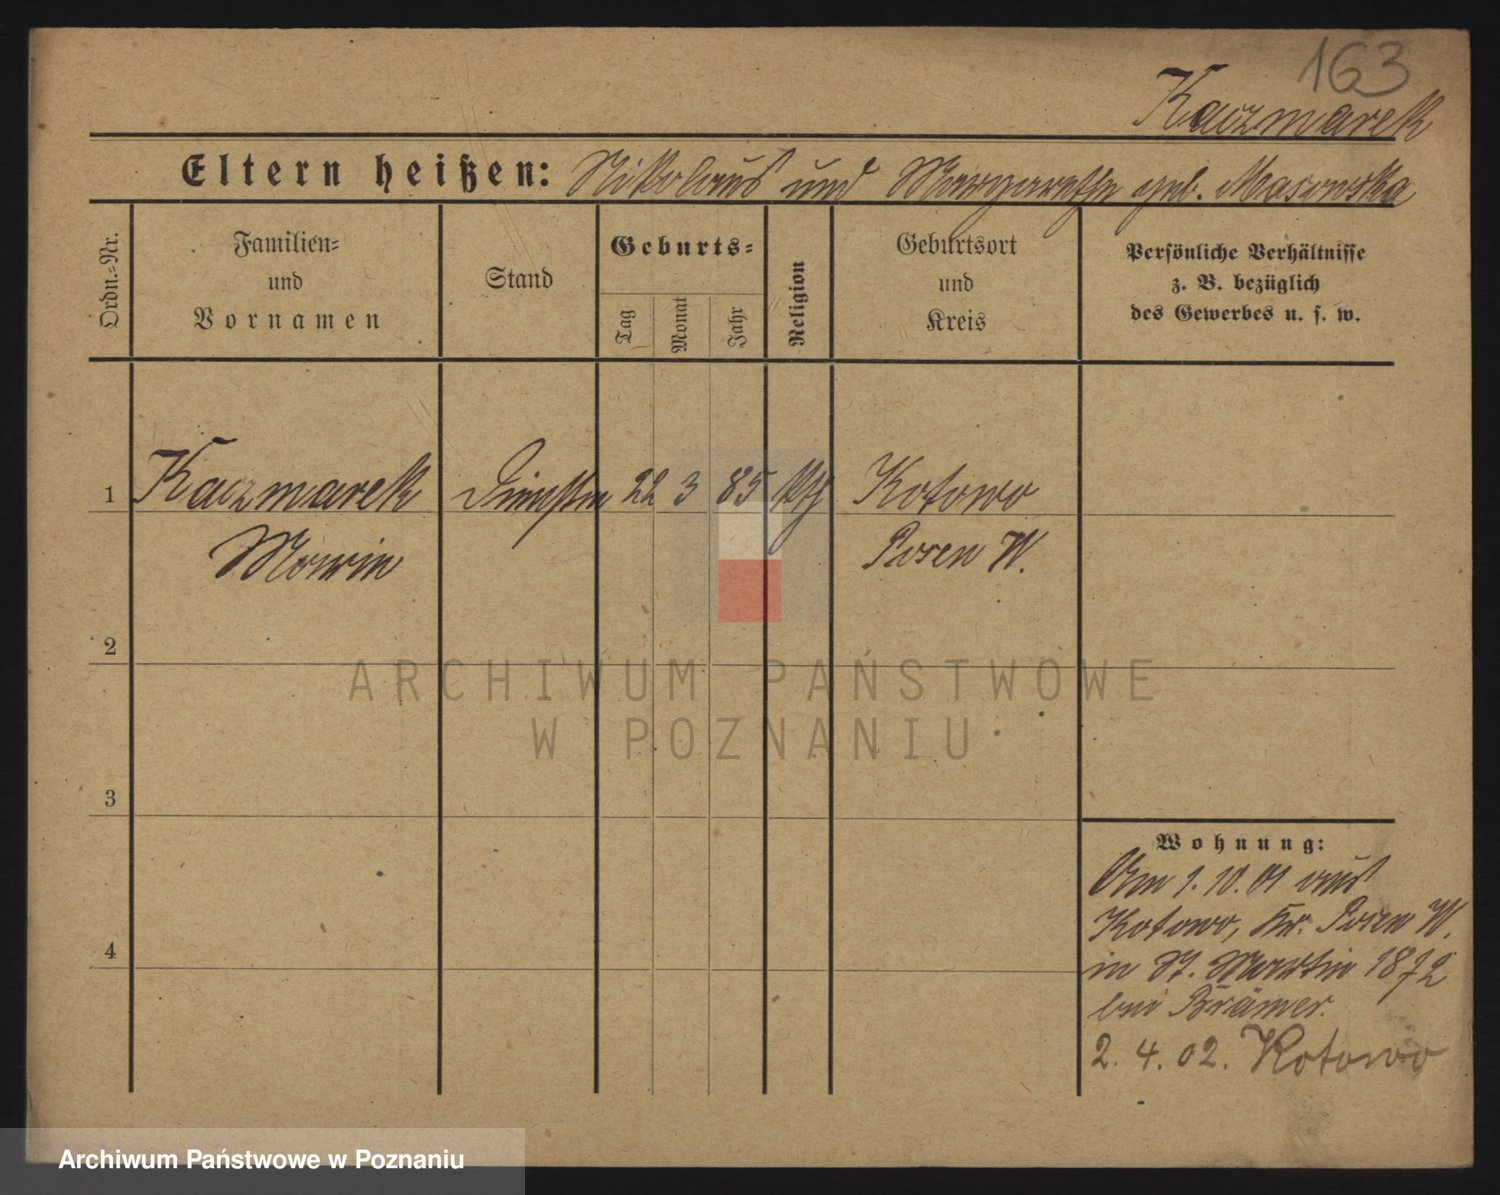 163
Kaczmarek
Eltern heißen: Nikolaus und Margarethe geb. Masowska
Ordn.-Nr.
Familien-
und
Vornamen
Stand
Geburts-
Tag
Monat
Jahr
Religion
Geburtsort
und
Kreis
Persönliche Verhältnisse
z. B. bezüglich
des Gewerbes u. s. w.
1 Kaczmarek 22 3 85 kth Kotowo
Posen W.
2
3
4
Wohnung:
Am 1.10.01 aus
Kotowo, Kr. Posen W.
in St. Martin
bei Krämer.
2. 4. 02. Kotowo
ARCHIWUM PAŃSTWOWE
W POZNANIU
Archiwum Państwowe w Poznaniu